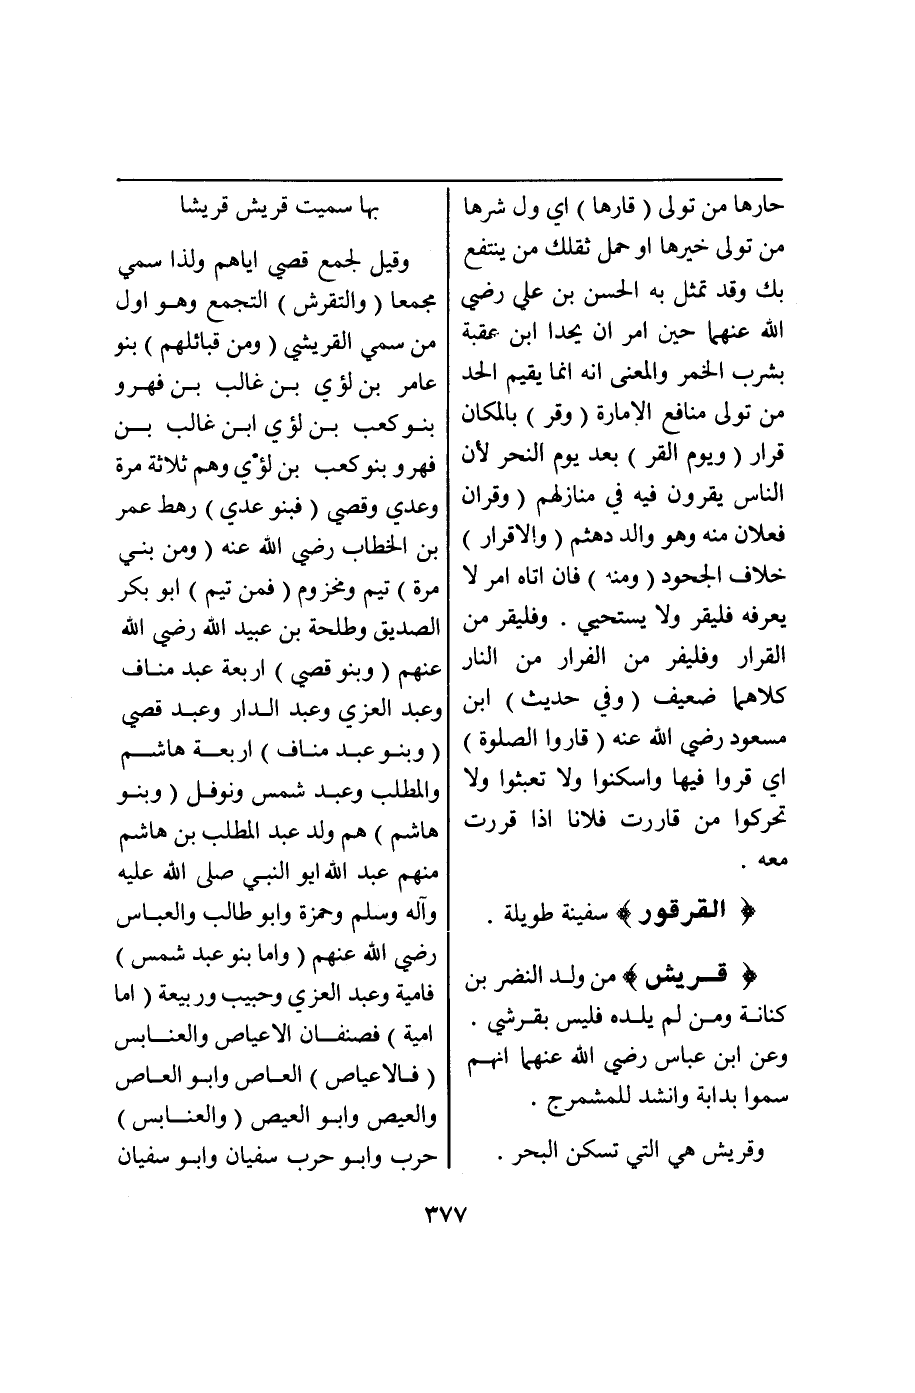 حارها من تولى ( قارها ) اي ول شرها
من تولى خيرها او حمل ثقلك من ينتفع
بك وقد تمثل به الحسن بن علي رضي
الله عنهما حين امر ان يحدا ابن عقبة
بشرب الخمر والمعنى انه انما يقيم الحد
من تولى منافع الامارة ( وقر ) بالمكان
قرار ( ويوم القر ) بعد يوم النحر لأن
الناس يقرون فيه في منازلهم ( وقران
فعلان منه وهو والد دهثم ( والاقرار )
خلاف الجحود ( ومنه ) فان اتاه امر لا
يعرفه فليقر ولا يستحيي . وفليقر من
القرار وفليفر من الفرار من النار
كلاهما ضعيف ( وفي حديث ) ابن
مسعود رضي الله عنه ( قاروا الصلوة )
اي قروا فيها واسكنوا ولا تعبثوا ولا
تحركوا من قاررت فلانا اذا قررت
معه .
﴿ القرقور ﴾ سفينة طويلة .
﴿ قريش ﴾ من ولد النضر بن
كنانة ومن لم يلده فليس بقرشي .
وعن ابن عباس رضي الله عنهما انهم
سموا بدابة وانشد للمشمرج .
وقريش هي التي تسكن البحر .
بها سميت قريش قريشا
وقيل لجمع قصي اياهم ولذا سمي
مجمعا ( والتقرش ) التجمع وهو اول
من سمي القريشي ( ومن قبائلهم ) بنو
عامر بن لؤي بن غالب بن فهر و
بنو كعب بن لؤي ابن غالب بن
فهر و بنو كعب بن لؤي وهم ثلاثة مرة
وعدي وقصي ( فبنو عدي ) رهط عمر
بن الخطاب رضي الله عنه ( ومن بني
مرة ) تيم ومخزوم ( فمن تيم ) ابو بكر
الصديق وطلحة بن عبيد الله رضي الله
عنهم ( وبنو قصي ) اربعة عبد مناف
وعبد العزي وعبد الدار وعبد قصي
( وبنو عبد مناف ) اربعة هاشم
والمطلب وعبد شمس ونوفل ( وبنو
هاشم ) هم ولد عبد المطلب بن هاشم
منهم عبد الله ابو النبي صلى الله عليه
وآله وسلم وحمزة وابو طالب والعباس
رضي الله عنهم ( واما بنو عبد شمس )
فامية وعبد العزي وحبيب وربيعة ( اما
امية ) فصنفان الاعياص والعنابس
( فالاعياص ) العاص وابو العاص
والعيص وابو العيص ( والعنابس )
حرب وابو حرب سفيان وابو سفيان
٣٧٧